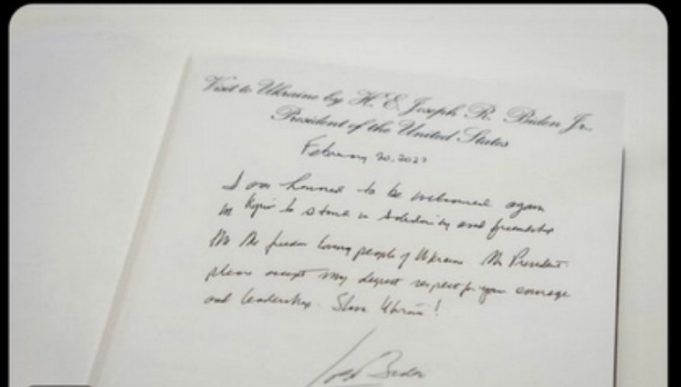 Visit to Ukraine by H. E. Joseph R. Biden Jr.,
President of the United States
February 20, 2023
I am honored to be welcomed again
in Kyiv to stand in solidarity and friendship
with the freedom loving people of Ukraine. Mr President
please accept my deepest respect for your courage
and leadership. Slava Ukraini!
Joe Biden